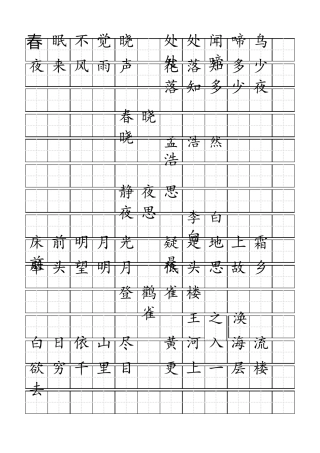 春眠不觉晓 处处闻啼鸟
处 啼
夜来风雨声 花落知多少
落知多少夜
春晓
晓
孟浩然
浩
静夜思
夜思
李白
白
床前明月光 疑是地上霜
前
举头望明月 低头思故乡
登鹳雀楼
雀
王之涣
白日依山尽 黄河入海流
欲穷千里目 更上一层楼
去